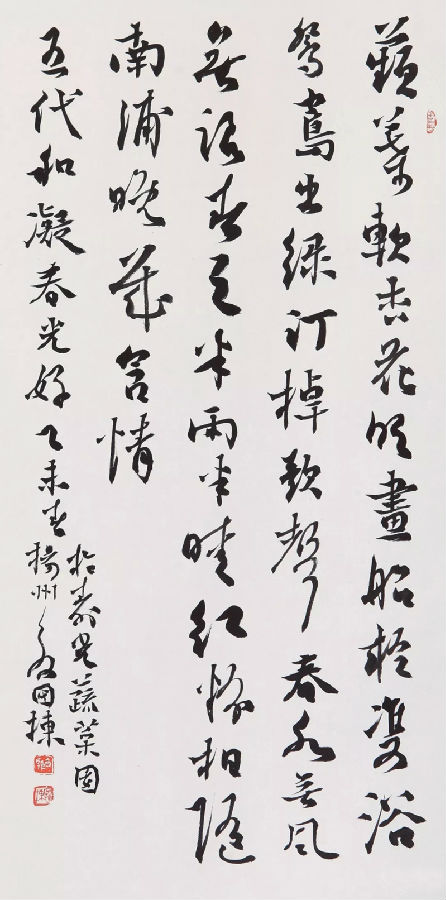 蘋葉軟杏花明畫船輕雙浴
鴛鴦出綠汀棹歌聲春水無風
無浪春天半雨半晴紅粉相隨
南浦晚幾含情
五代和凝春光好乙未春
於壽光蔬菜園
揚州國棟